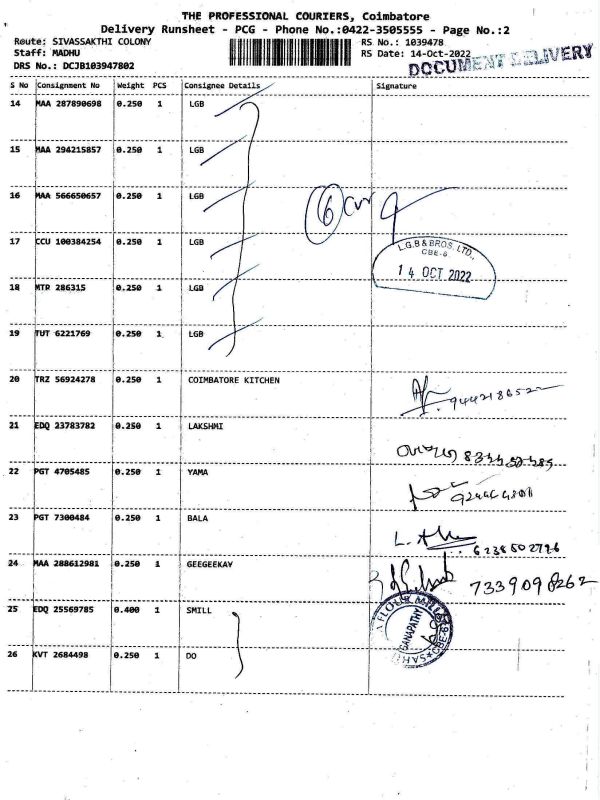 THE PROFESSIONAL COURIERS, Coimbatore
Delivery Runsheet - PCG - Phone No.:0422-3505555 - Page No.:2
Route: SIVASSAKTHI COLONY RS No.: 1039478
Staff: MADHU RS Date: 14-Oct-2022
DOCUMENT DELIVERY
DRS No.: DCJB103947802
S No Consignment No Weight PCS Consignee Details Signature
14 MAA 287890698 0.250 1 LGB
15 MAA 294215857 0.250 1 LGB
16 MAA 566650657 0.250 1 LGB
6
17 CCU 100384254 0.250 1 LGB
L.G.B & BROS. LTD.,
CBE-6
14 OCT 2022
18 MTR 286315 0.250 1 LGB
19 TUT 6221769 0.250 1 LGB
20 TRZ 56924278 0.250 1 COIMBATORE KITCHEN
21 EDQ 23783782 0.250 1 LAKSHMI
22 PGT 4705485 0.250 1 YAMA
23 PGT 7300484 0.250 1 BALA
6238502726
24 MAA 288612981 0.250 1 GEEGEEKAY
7339098262
25 EDQ 25569785 0.400 1 SMILL
FLOUR MILL
GANAPATHY
CBE-6
26 KVT 2684498 0.250 1 DO